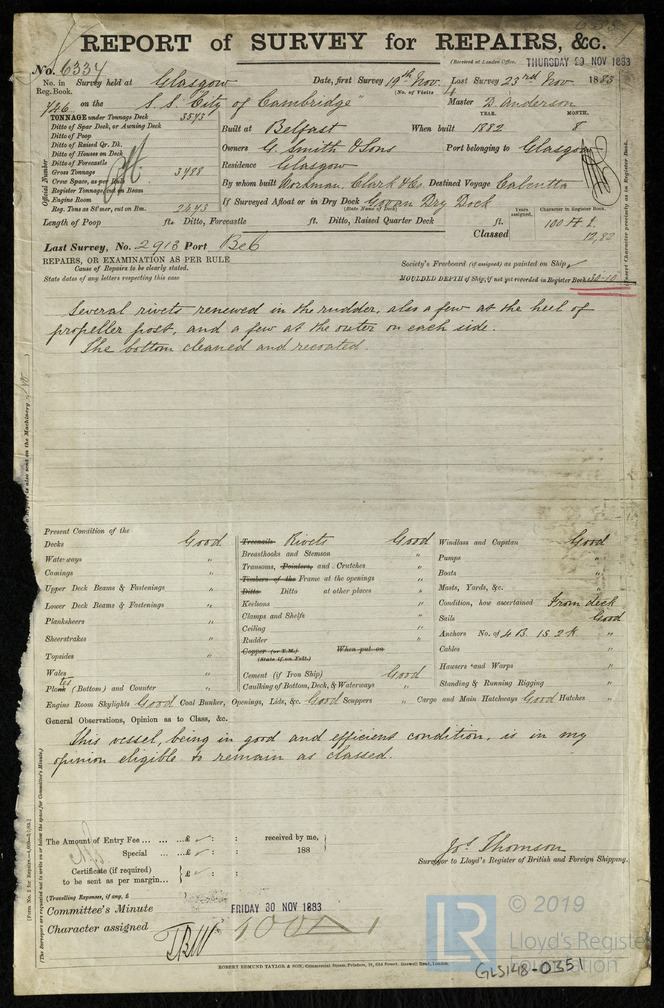 REPORT of SURVEY for REPAIRS, &c.
(Received at London Office, THURSDAY 29 NOV 1883
No. 6334
No. in Reg. Book. Survey held at Glasgow Date, first Survey 19th Nov Last Survey 23rd Nov 1883
(No. of Visits 4
746 on the S.S. "City of Cambridge" Master D. Anderson
TONNAGE under Tonnage Deck 3573
Ditto of Spar Deck, or Awning Deck
Ditto of Poop
Ditto of Raised Qr. Dk.
Ditto of Houses on Deck
Ditto of Forecastle
Gross Tonnage 3788
Crew Space, as per Rule
Register Tonnage, cut on Beam
Engine Room
Reg. Tons as St'mer, cut on Bm. 2473
Official Number
YEAR. MONTH.
Built at Belfast When built 1882 8
Owners G. Smith & Sons Port belonging to Glasgow
Residence Glasgow
By whom built Workman, Clark & Co. Destined Voyage Calcutta
If Surveyed Afloat or in Dry Dock Govan Dry Dock
(State Name of Dock)
Length of Poop ft. Ditto, Forecastle ft. Ditto, Raised Quarter Deck ft.
Years assigned. Character in Register Book.
Classed 100 A 1.
12,82
Last Survey, No. 2913 Port Bel
REPAIRS, OR EXAMINATION AS PER RULE
Cause of Repairs to be clearly stated.
State dates of any letters respecting this case
Society's Freeboard (if assigned) as painted on Ship
MOULDED DEPTH of Ship, if not yet recorded in Register Book 30-10
Several rivets renewed in the rudder, also a few at the heel of
propeller post, and a few at the outer on each side.
The bottom cleaned and recoated.
Present Condition of the
Decks Good
Waterways "
Comings "
Upper Deck Beams & Fastenings "
Lower Deck Beams & Fastenings "
Planksheers "
Sheerstrakes "
Topsides "
Wales "
Plates (Bottom) and Counter "
Treenails Rivets Good
Breasthooks and Stemson "
Transoms, Pointers, and Crutches "
Timbers of the Frame at the openings "
Ditto Ditto at other places "
Keelsons "
Clamps and Shelfs "
Ceiling "
Rudder "
Copper (or Y.M.) When put on
(State if on Felt.)
Cement (if Iron Ship) Good
Caulking of Bottom, Deck, & Waterways "
Windlass and Capstan Good
Pumps "
Boats "
Masts, Yards, &c. "
Condition, how ascertained From deck
Sails Good
Anchors No. of 4 B. 1 S. 2 K "
Cables "
Hawsers and Warps "
Standing & Running Rigging "
Engine Room Skylights Good Coal Bunker, Openings, Lids, &c. Good Scuppers " Cargo and Main Hatchways Good Hatches "
General Observations, Opinion as to Class, &c.
This vessel, being in good and efficient condition, is in my
opinion eligible to remain as classed.
The Amount of Entry Fee ... ... £ : : received by me,
Special ... ... £ : : 188
Certificate (if required) to be sent as per margin... £ : :
(Travelling Expenses, if any, £
Jos. Thomson
Surveyor to Lloyd's Register of British and Foreign Shipping.
Committee's Minute FRIDAY 30 NOV 1883
Character assigned 100 A 1
ROBERT EDMUND TAYLOR & SON,
GLS148-0351
LR
© 2019
Lloyd's Register
Foundation